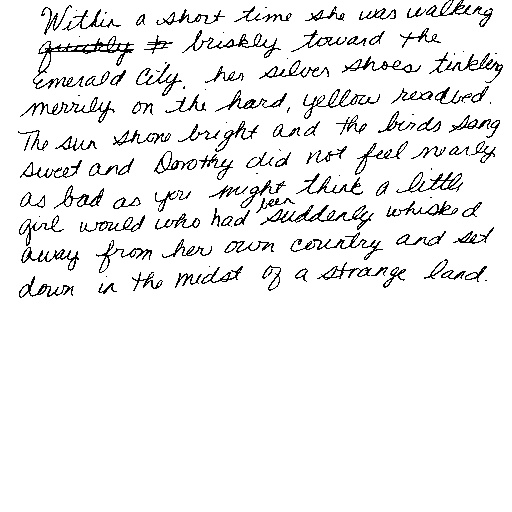 Within a short time she was walking
quickly to briskly toward the
Emerald City, her silver shoes tinkling
merrily on the hard, yellow roadbed.
The sun shone bright and the birds sang
sweet and Dorothy did not feel nearly
as bad as you might think a little
girl would who had been suddenly whisked
away from her own country and set
down in the midst of a strange land.